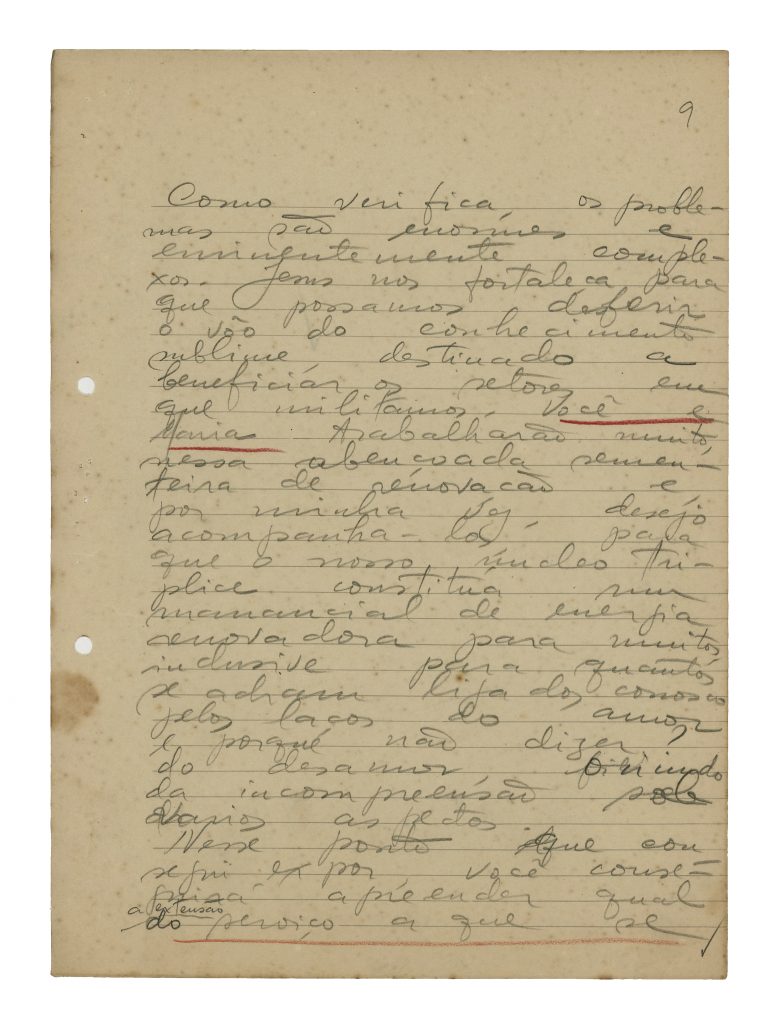 9
Como verifica, os proble-
mas são enormes e
eminentemente comple-
xos. Jesus nos fortaleça para
que possamos desferir
o vôo do conhecimento
sublime, destinado a
beneficiar os setores em
que militamos. Você e
Maria trabalharão muito,
nessa abençoada semen-
teira de renovação e,
por minha vez, desejo
acompanha-la, para
que o nosso núcleo tri-
plice constitua um
manancial de energia
renovadora para muitos
inclusive para quantos
se acham ligados conosco
pelos laços do amor
e porquê não dizer?
do desamor oriundo
da incompreensão sob
varios aspetos.
Nesse ponto que con
segui expor, você conse-
guirá apreender qual
a extensão
do serviço a que se